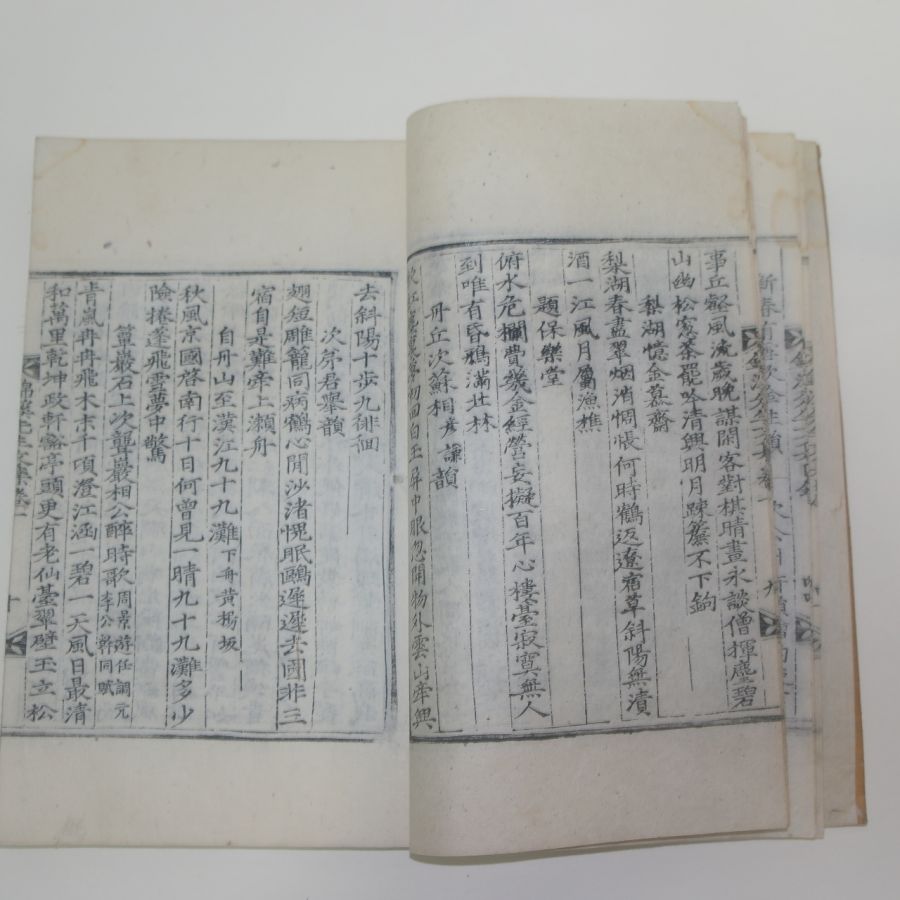 事丘壑風流歲晚謀閑客對棋晴晝永談僧揮麈碧
山幽松家茶罷吟淸興明月踈簾不下鉤
梨湖憶金慕齋
梨湖春盡翠烟消惆悵何時鶴返遼宿草斜陽無漬
酒一江風月屬漁樵
題保樂堂
俯水危欄費幾金經營妄擬百年心樓臺寂寞無人
到唯有昏鴉滿北林
丹丘次蘇相彦謙韻
回白玉屛中眼忽開物外雲山牽興
去斜陽十步九徘徊
次第君擧韻
翅短雕籠同病鶴心閒沙渚愧眠鷗遲遲去國非三
宿自是難牽上瀨舟
自丹山至漢江九十九灘下舟黃楊坂
秋風京國啓南行十日何曾見一晴九十九灘多少
險捲蓬飛雪夢中驚
簟巖石上次聾巖相公醉時歌周景遊任調元李公幹同賦
肯嵐冉冉飛木末千頃澄江涵一碧一天風日最淸
和萬里乾坤政軒豁亭頭更有老仙臺翠壁玉立松
十